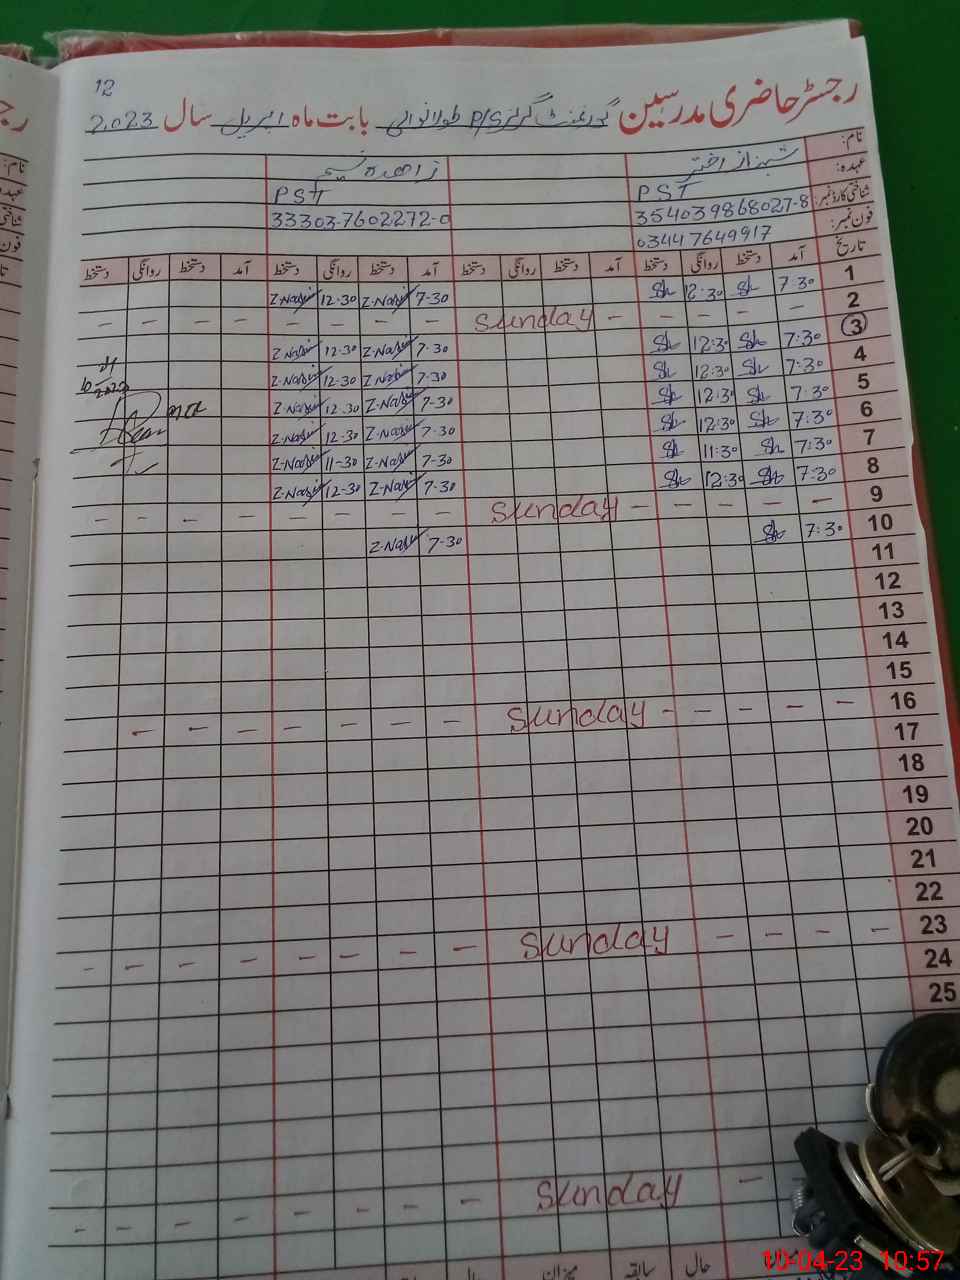 12
رجسٹر حاضری مدرسین گورنمنٹ گرلز P/S طولانوالی بابت ماہ اپریل سال 2023
نام: شہناز اختر زاھدہ نسیم
عہدہ: PST PST
شناختی کارڈ نمبر: 354039868027-8 33303-7602272-0
فون نمبر: 03447649917
تاریخ آمد دستخط روانگی دستخط آمد دستخط روانگی دستخط آمد دستخط روانگی دستخط آمد دستخط روانگی دستخط
1 7:30 Sh 12:30 Sh 7-30 Z.Nasim 12-30 Z.Nasim
2 - - - - Sunday - - - - - - - -
3 7:30 Sh 12:30 Sh 7-30 Z.Nasim 12-30 Z.Nasim
4 7:30 Sh 12:30 Sh 7-30 Z.Nasim 12-30 Z.Nasim
5 7:30 Sh 12:30 Sh 7-30 Z.Nasim 12-30 Z.Nasim
6 7:30 Sh 12:30 Sh 7-30 Z.Nasim 12-30 Z.Nasim
7 7:30 Sh 11:30 Sh 7-30 Z.Nasim 11-30 Z.Nasim
8 7:30 Sh 12:30 Sh 7-30 Z.Nasim 12-30 Z.Nasim
9 - - - - Sunday - - - - - - - -
10 7:30 Sh 7-30 Z.Nasim
11
12
13
14
15
16 - - - - Sunday - - - - - - -
17
18
19
20
21
22
23 - - - - Sunday - - - - - - - -
24
25
Sunday
میزان سابقہ حال
10-04-23 10:57